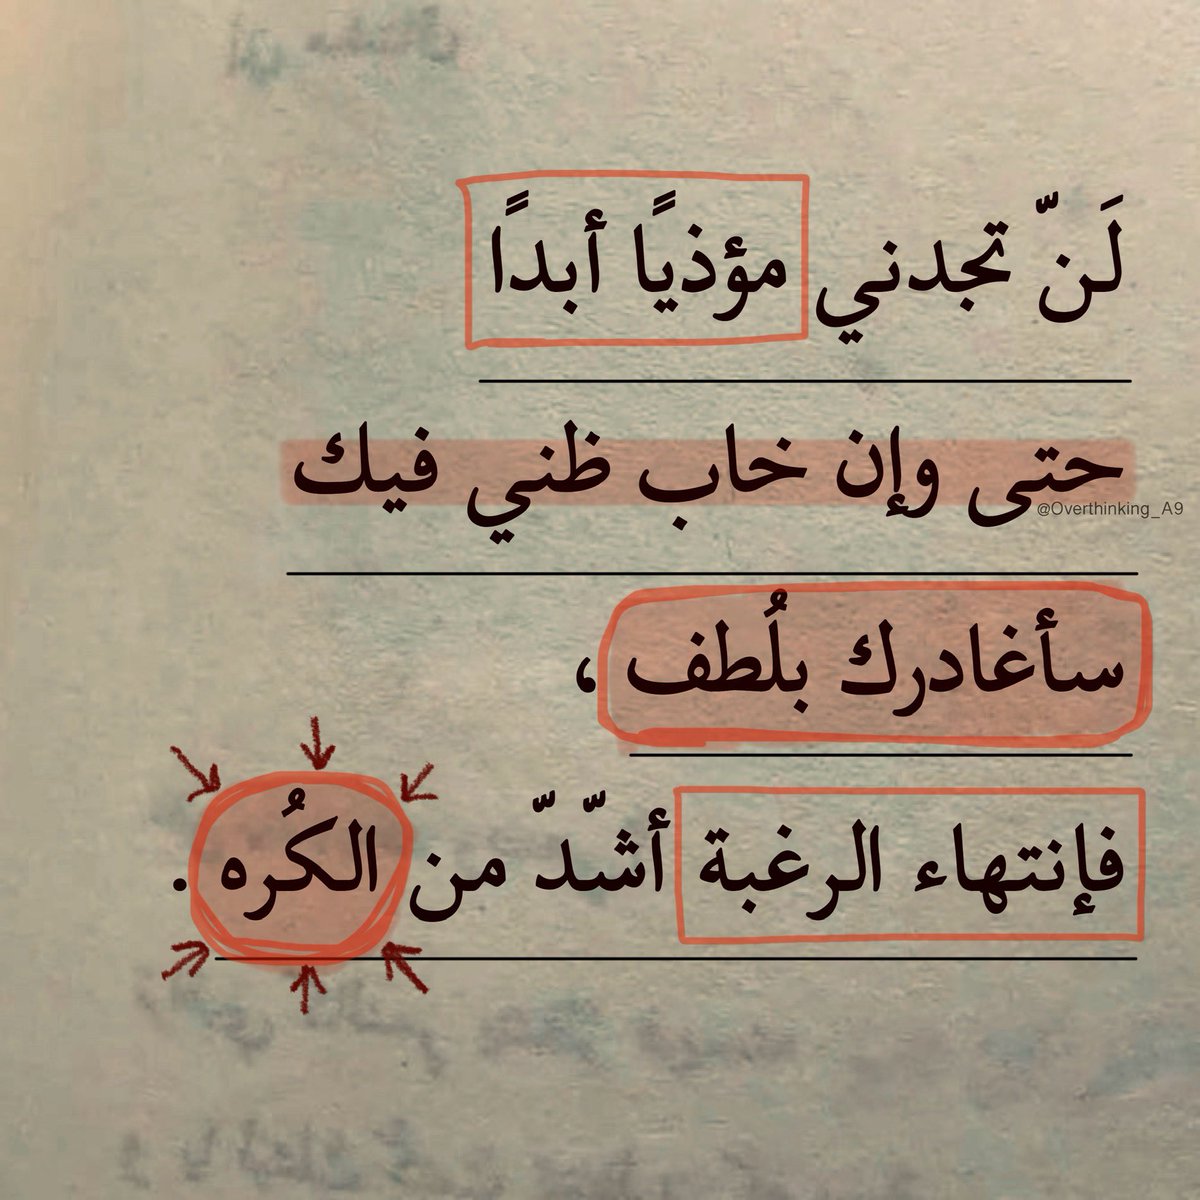 لَنّ تجدني مؤذيًا أبدًا
حتى وإن خاب ظني فيك
@Overthinking_A9
سأغادرك بلُطف ،
فإنتهاء الرغبة أشّدّ من الكُره .